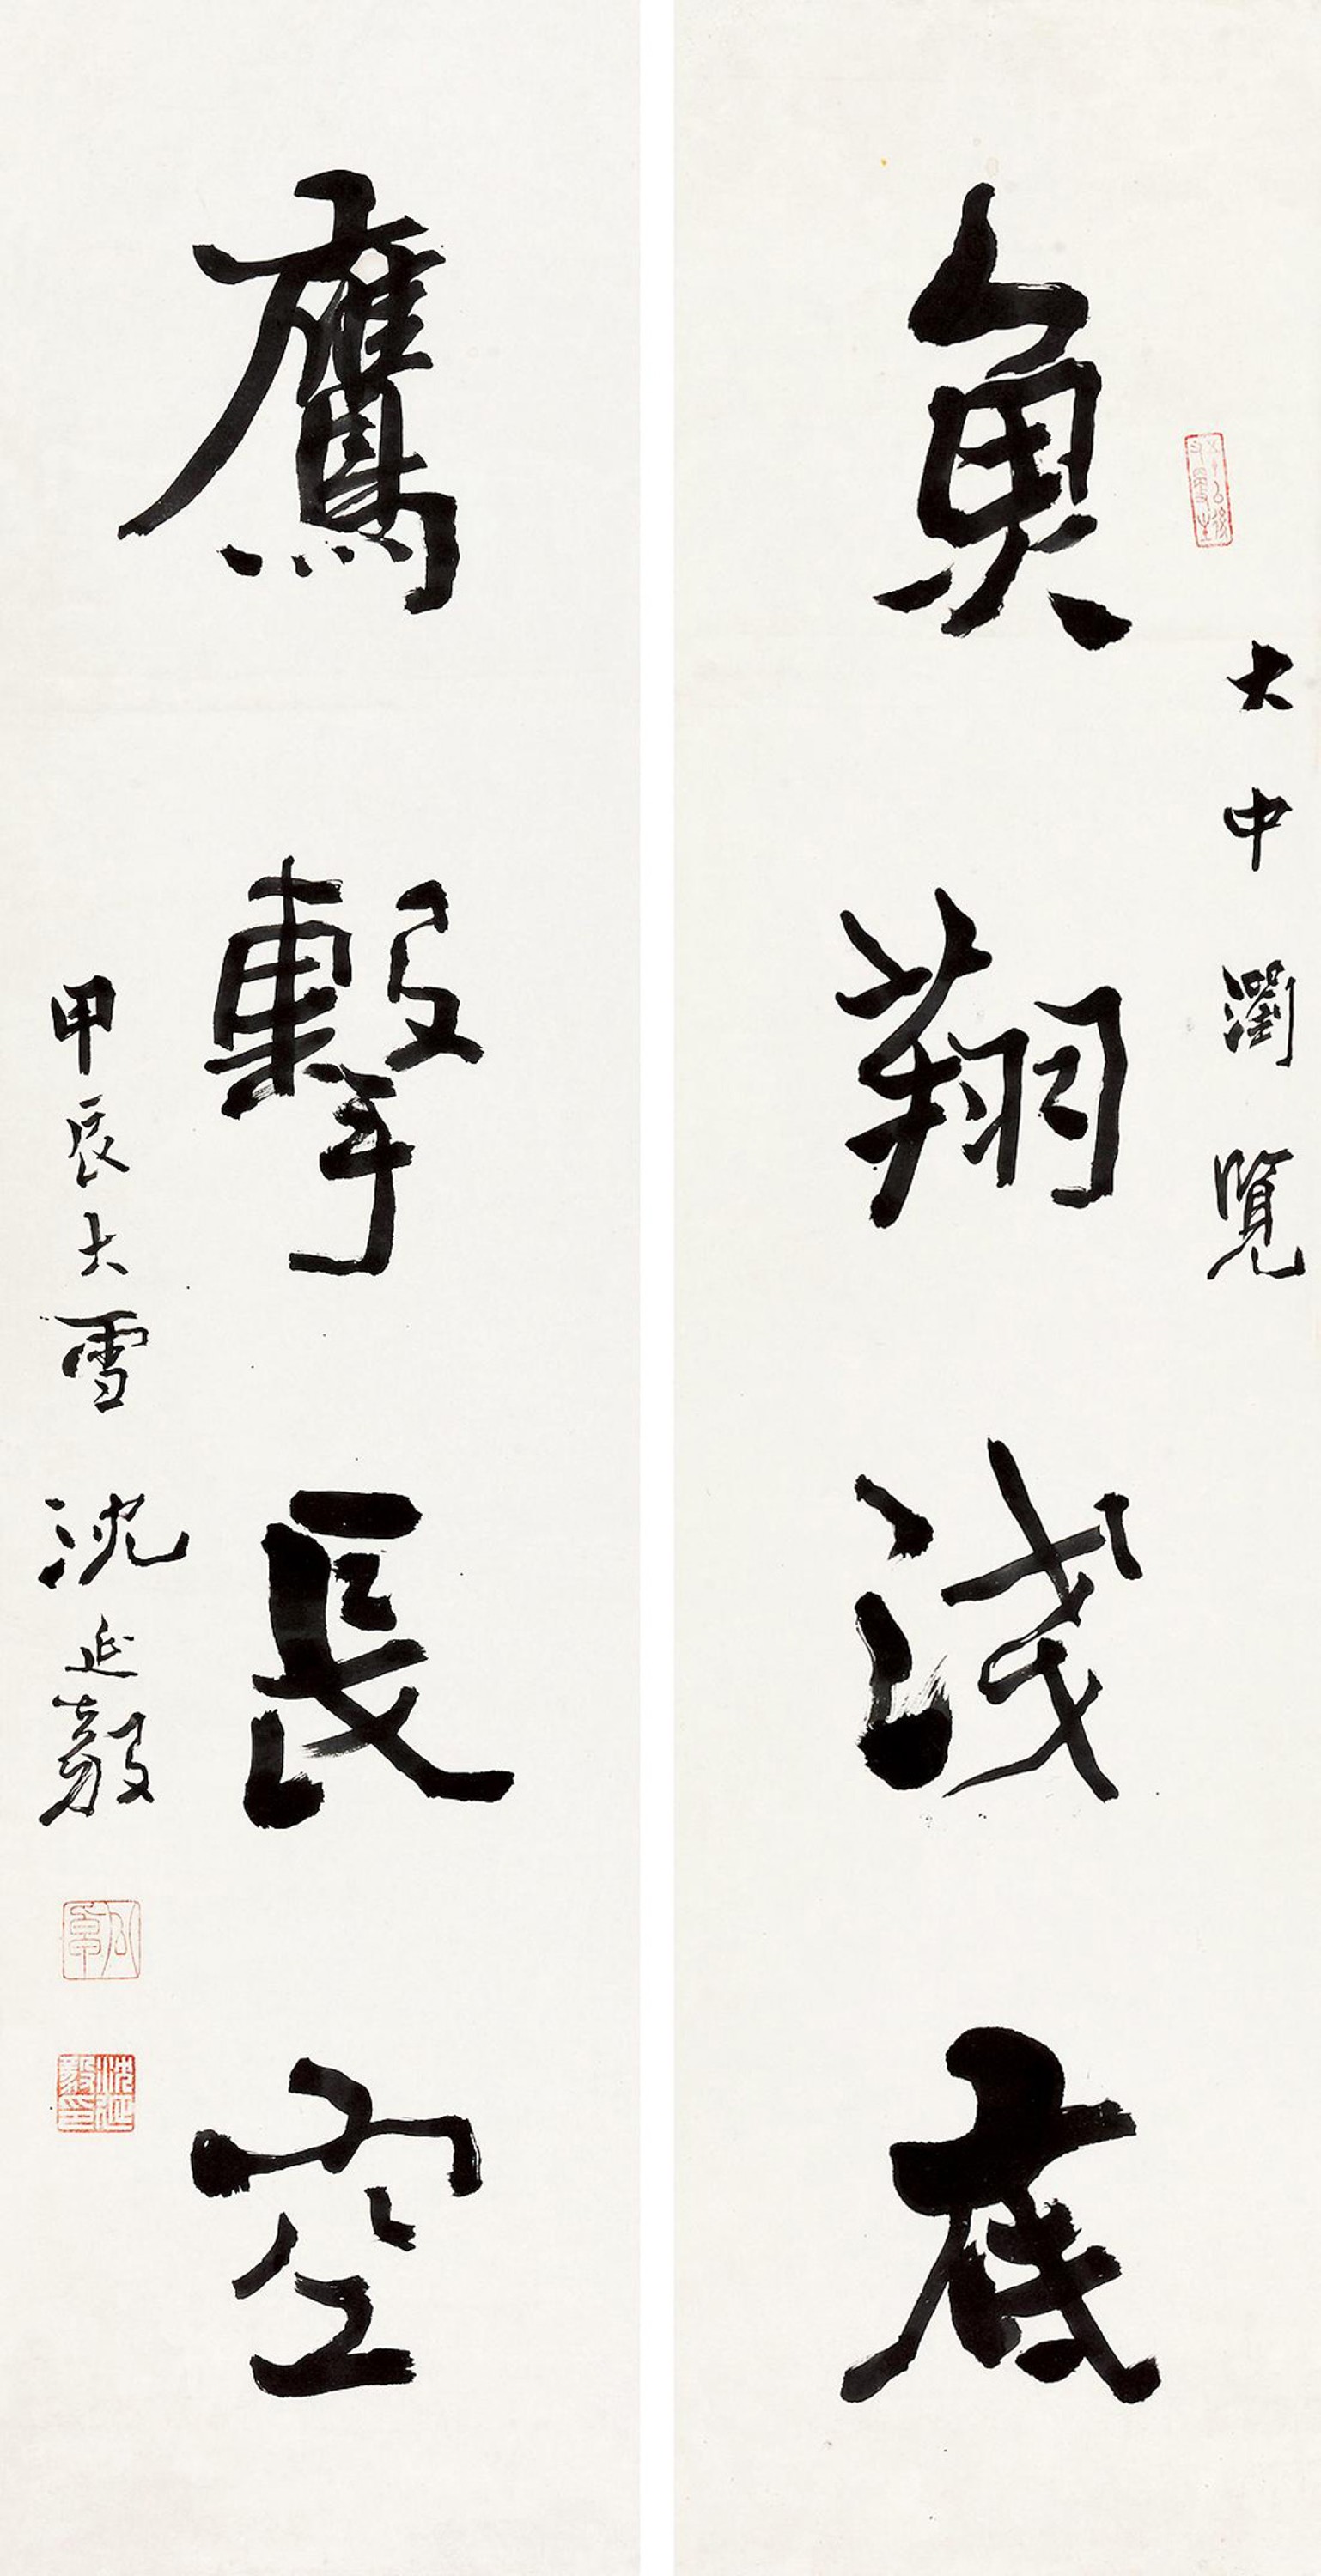 大中瀏覽
魚翔淺底
鷹擊長空
甲辰大雪 沈延毅
沈延毅印